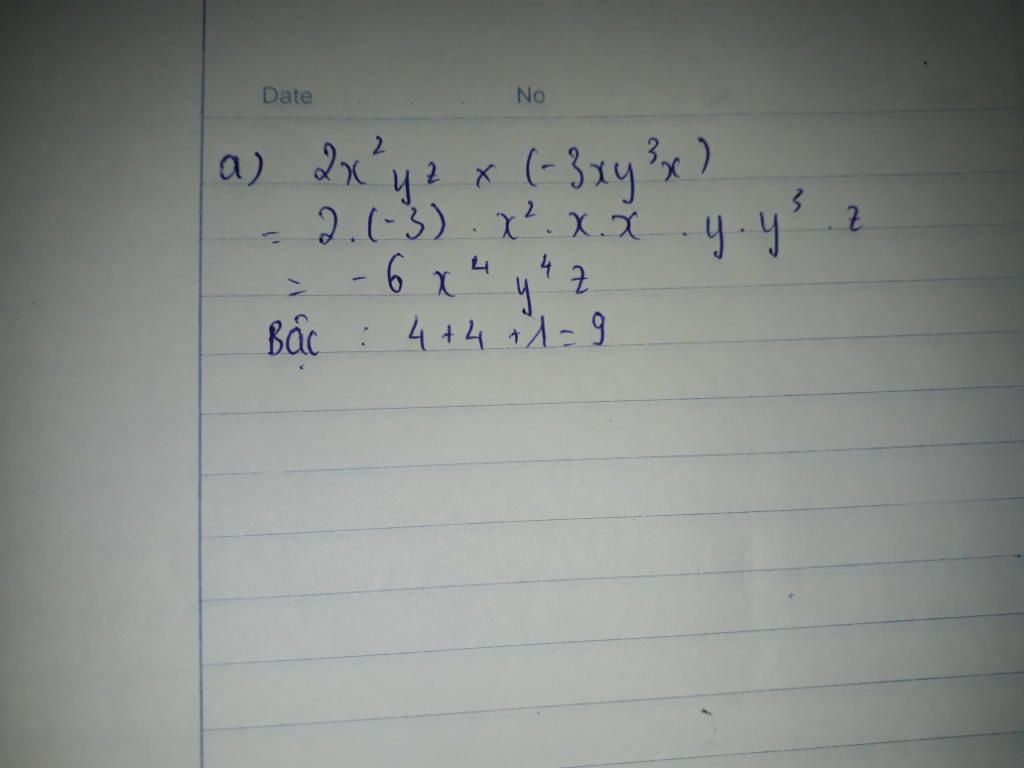 Date No
a) 2x²yz × (-3xy³x)
= 2.(-3) . x² . x . x . y . y³ . z
= -6 x⁴ y⁴ z
Bậc : 4 + 4 + 1 = 9